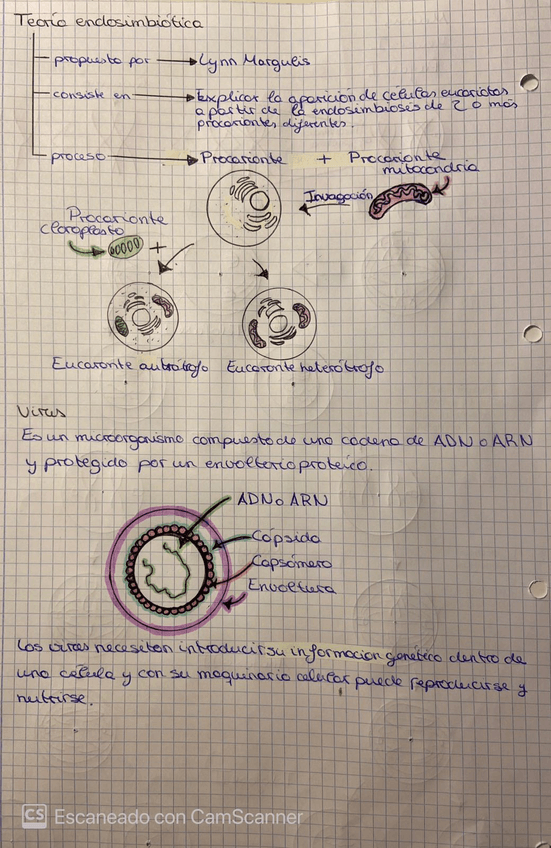 Teoría endosimbiótica
propuesto por → Lynn Margulis
consiste en → Explicar la aparición de celulas eucariotas
a partir de la endosimbiosis de 2 o más
procariontes diferentes.
proceso → Procarionte + Procarionte
mitocondria
Invagación
Procarionte
cloroplasto
+
Eucaronte autótrofo Eucaronte heterótrofo
Virus
Es un microorganismo compuesto de una cadena de ADN o ARN
y protegido por un envolterio proteico.
ADN o ARN
Cápsida
Capsómero
Envoltura
Los virus necesetan introducir su informacion genética dentro de
una célula y con su maquinaria celular puede reproducirse y
nutrirse.
CS Escaneado con CamScanner